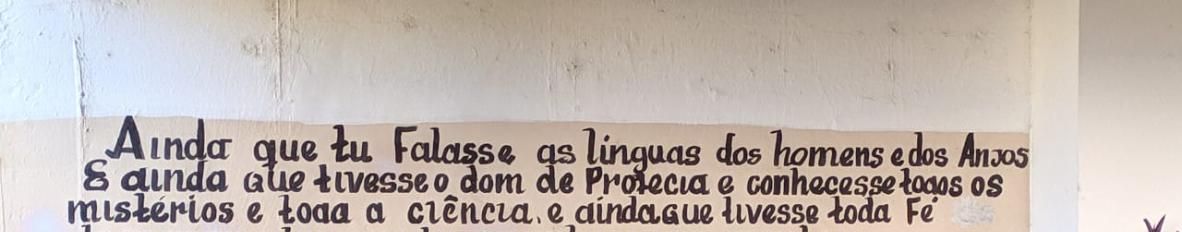 Ainda que tu Falasse as línguas dos homens e dos Anjos
E ainda que tivesse o dom de Profecia e conhecesse todos os
mistérios e toda a ciência, e ainda que tivesse toda Fé